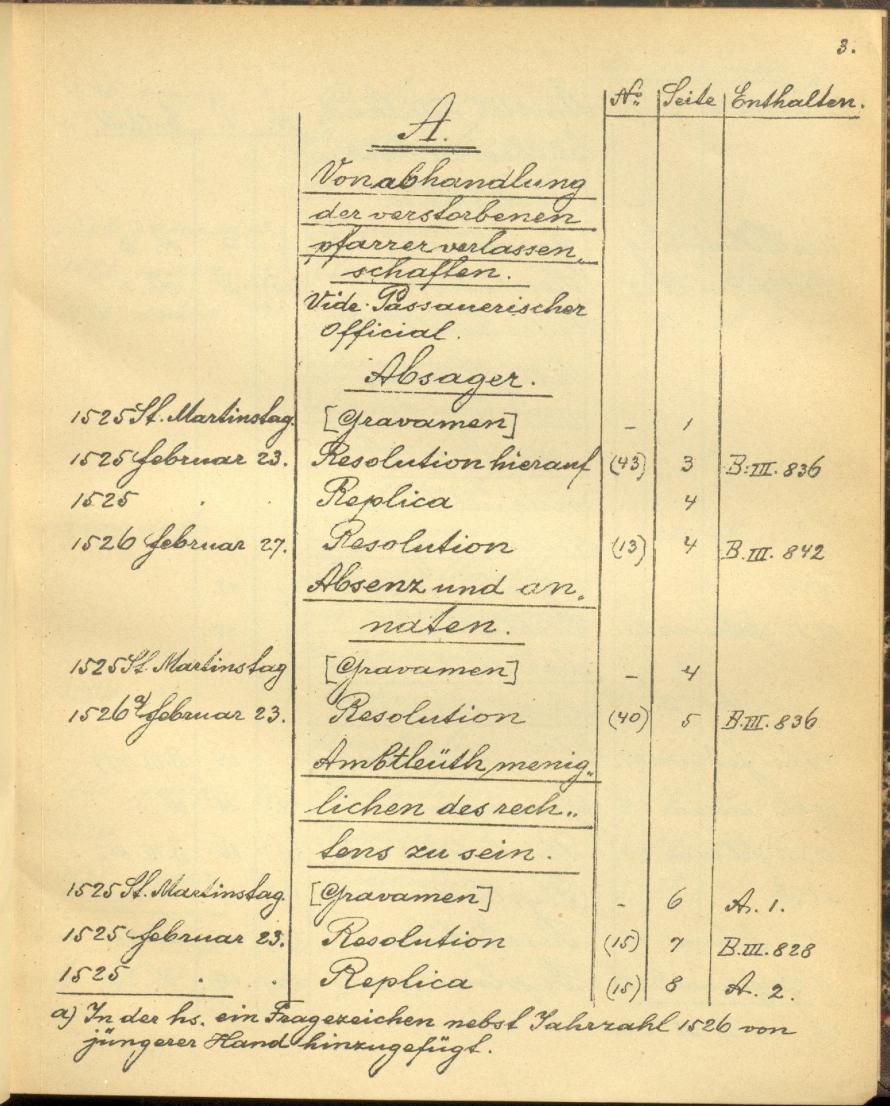 3.
No. Seite Enthalten.
A.
Von abhandlung
der verstorbenen
pfarrer verlassen„
schaften.
Vide Passauerischer
Official.
Absager.
1525 St. Martinstag. [Gravamen] – 1
1525 februar 23. Resolution hierauf (43) 3 B. III. 836
1525 . . Replica 4
1526 februar 27. Resolution (13) 4 B. III. 842
Absenz und an„
naten.
1525 St. Martinstag [Gravamen] – 4
1526 a) februar 23. Resolution (40) 5 B. III. 836
Ambtleüth menig„
lichen des rech„
tens zu sein.
1525 St. Martinstag. [Gravamen] - 6 A. 1.
1525 februar 23. Resolution (15) 7 B. III. 828
1525 . . Replica (15) 8 A. 2.
a) In der hs. ein Fragezeichen nebst Jahrzahl 1526 von
jüngerer Hand hinzugefügt.